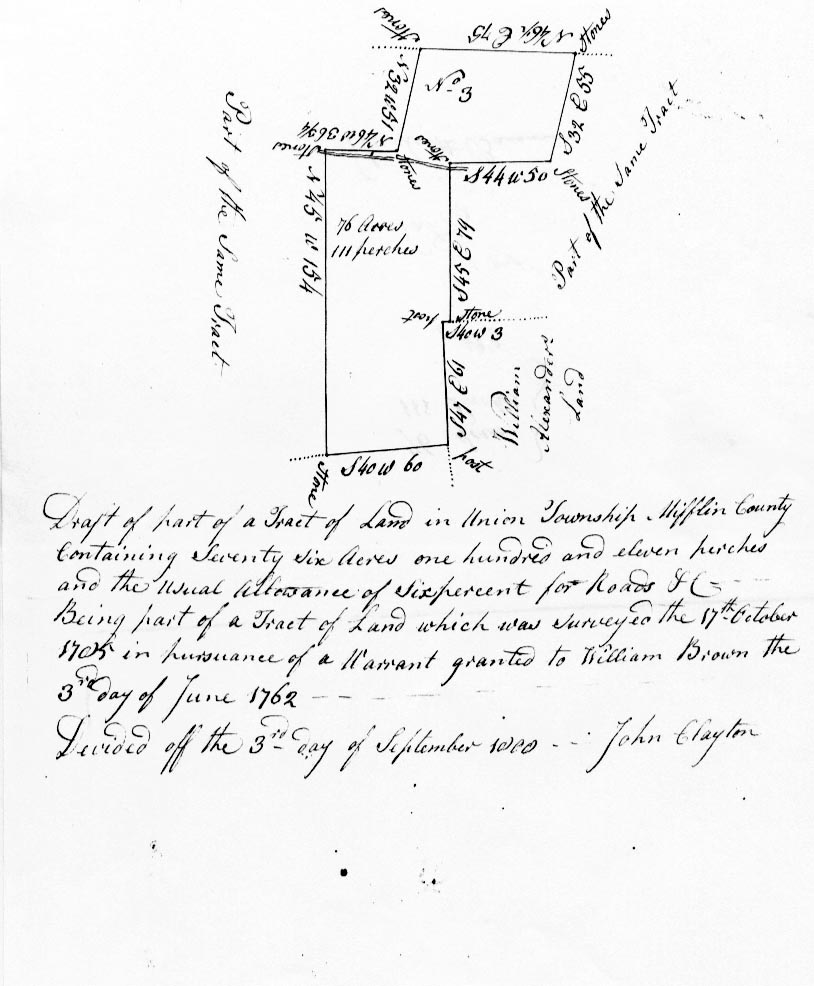 Stones
N 46½ E 75
Stones
N 32 W 51
No 3
S 32 E 55
N 46 W 36
Stones
Stones
Stones
S 44 W 50
Stones
Part of the Same Tract
Part of the Same Tract
N 45 W 154
76 Acres
111 perches
S 45 E 79
post
Stone
S 40 W 3
S 47 E 61
William
Alexanders
Land
post
S 40 W 60
Stone
Draft of part of a Tract of Land in Union Township Mifflin County
Containing Seventy Six Acres one hundred and eleven perches
and the Usual Allowance of Six percent for Roads &C
Being part of a Tract of Land which was Surveyed the 17th October
in pursuance of a Warrant granted to William Brown the
3rd day of June 1762
Devided off the 3rd day of September 1800 John Clayton